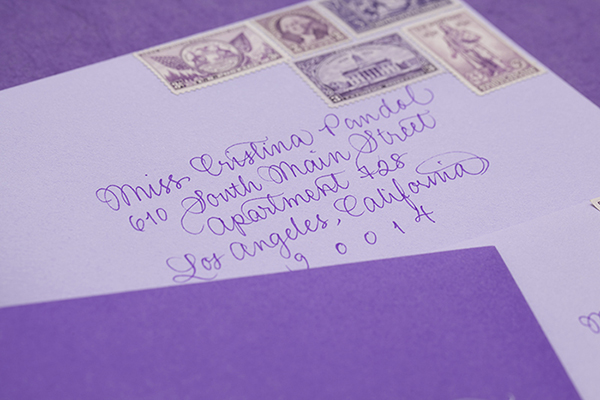 Miss Cristina Pandol
610 South Main Street
Apartment 728
Los Angeles, California
90014